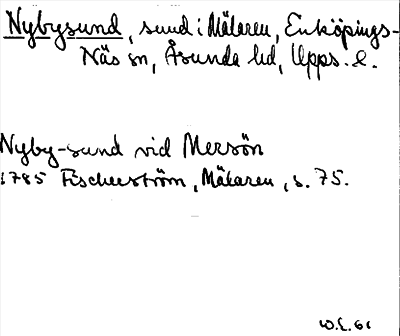 Nybysund, sund i Mälaren, Enköpings-
Näs sn, Åsunda hd, Upps. l.
Nyby-sund vid Mersön
1785 Fischerström, Mälaren, s. 75.
W.L. 61